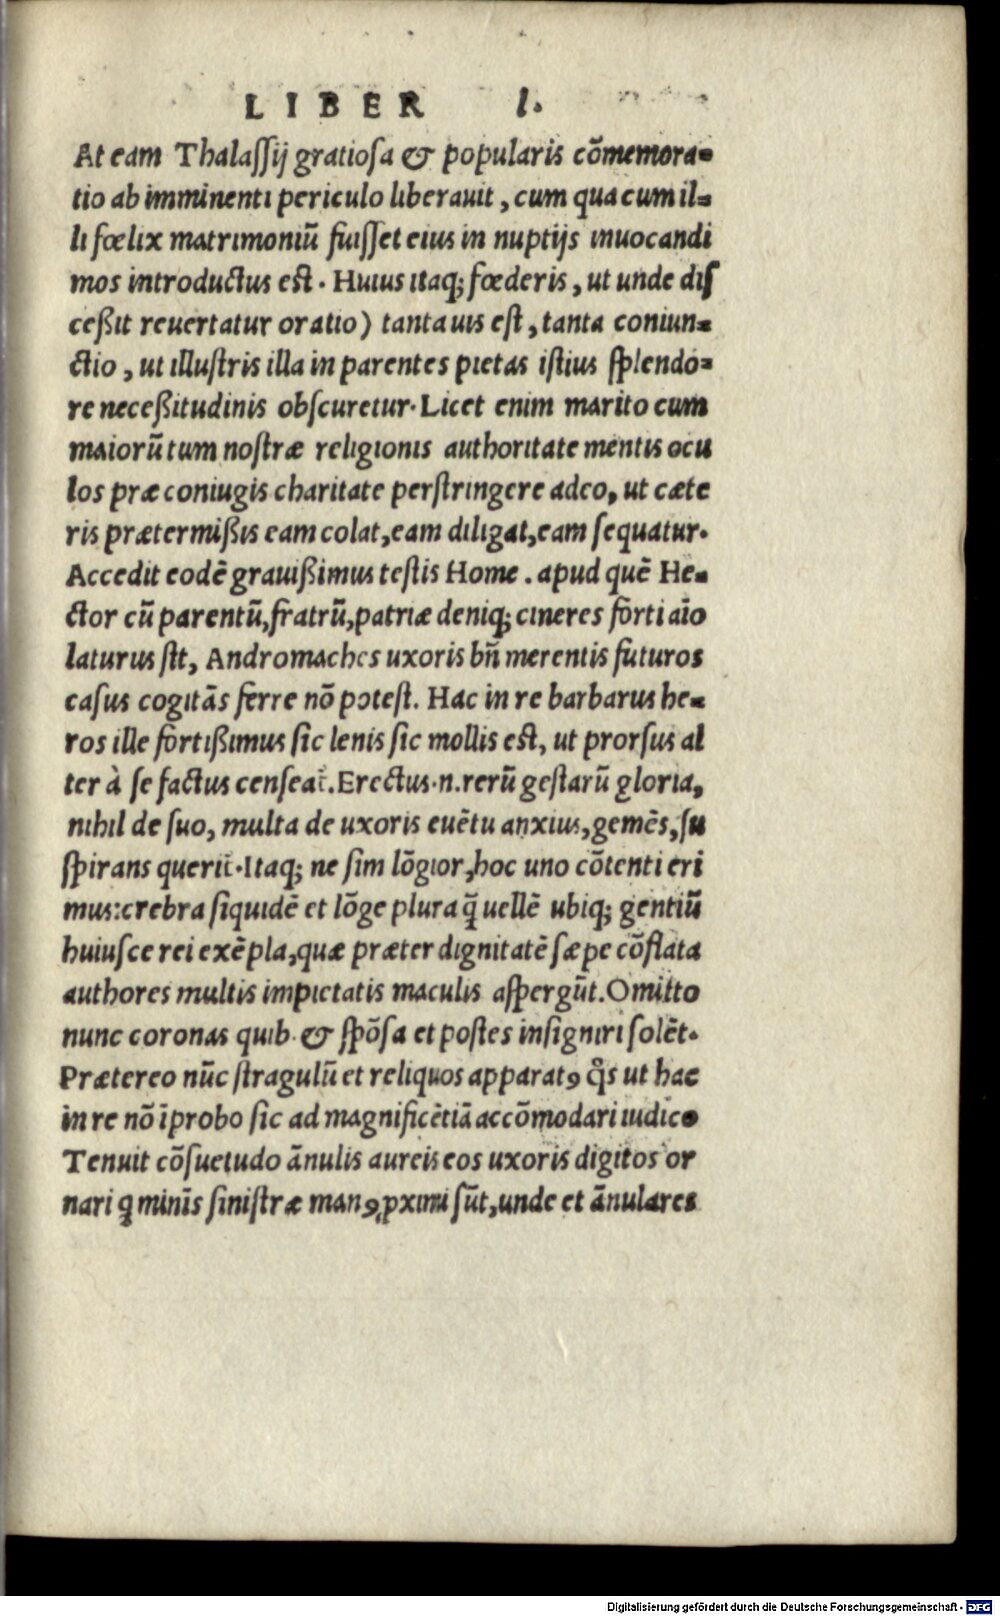 LIBER I.
At eam Thalassij gratiosa & popularis cõmemora=
tio ab imminenti periculo liberauit, cum qua cum il=
li fœlix matrimoniũ fuisset eius in nuptijs inuocandi
mos introductus est. Huius itaq; fœderis, ut unde dis
ceßit reuertatur oratio) tanta uis est, tanta coniun=
ctio, ut illustris illa in parentes pietas istius splendo=
re neceßitudinis obscuretur. Licet enim marito cum
maiorũ tum nostræ religionis authoritate mentis ocu
los præ coniugis charitate perstringere adeo, ut cæte
ris prætermißis eam colat, eam diligat, eam sequatur.
Accedit eodẽ grauißimus testis Home. apud quẽ He=
ctor cũ parentũ, fratrũ, patriæ deniq; cineres forti aĩo
laturus sit, Andromaches uxoris bñ merentis futuros
casus cogitãs ferre nõ potest. Hac in re barbarus he=
ros ille fortißimus sic lenis sic mollis est, ut prorsus al
ter à se factus censeat̃. Erectus.n. rerũ gestarũ gloria,
nihil de suo, multa de uxoris euẽtu anxius, gemẽs, su
spirans querit̃. Itaq; ne sim lõgior, hoc uno cõtenti eri
mus: crebra siquidẽ et lõge plura q̃ uellẽ ubiq; gentiũ
huiusce rei exẽpla, quæ præter dignitatẽ sæpe cõflata
authores multis impietatis maculis aspergũt. Omitto
nunc coronas quib. & spõsa et postes insigniri solẽt.
Prætereo nũc stragulũ et reliquos apparatꝯ q̃s ut hac
in re nõ ĩprobo sic ad magnificẽtiã accõmodari iudico
Tenuit cõsuetudo ãnulis aureis eos uxoris digitos or
nari q minĩs sinistræ manꝯ ꝓximi sũt, unde et ãnulares
Digitalisierung gefördert durch die Deutsche Forschungsgemeinschaft - DFG